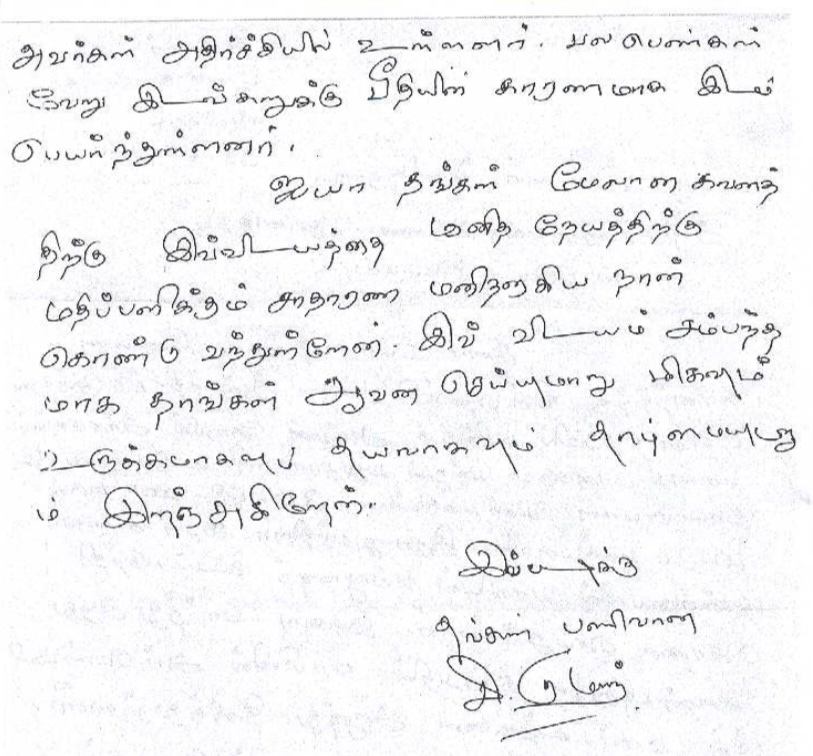 அவர்கள் அதிர்ச்சியில் உள்ளனர். பல பெண்கள்
வேறு இடங்களுக்கு பீதியின் காரணமாக இடம்
பெயர்ந்துள்ளனர்.
ஐயா தங்கள் மேலான கவனத்
திற்கு இவ்விடயத்தை மனித நேயத்திற்கு
மதிப்பளிக்கும் சாதாரண மனிதனாகிய நான்
கொண்டு வந்துள்ளேன். இவ் விடயம் சம்பந்த
மாக தாங்கள் ஆவன செய்யுமாறு மிகவும்
உருக்கமாகவும் தயவாகவும் தாழ்மையுடனு
ம் இறைஞ்சுகிறேன்.
இப்படிக்கு
தங்கள் பணிவான